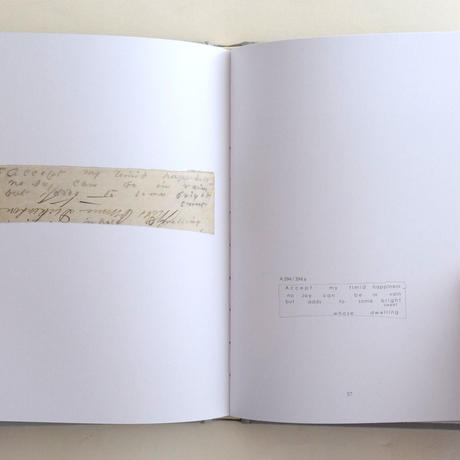 Accept my timid happiness
no Joy can be in vain
but adds to some bright
sweet
Dickinson
A 394 / 394 a
Accept my timid happiness
no Joy can be in vain
but adds to some bright
sweet
whose dwelling
57